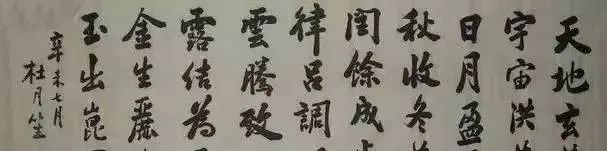 天地玄
宇宙洪
日月盈
秋收冬
閏餘成
律呂調
雲騰致
露結為
金生麗
玉出崑
辛未七月
杜月笙